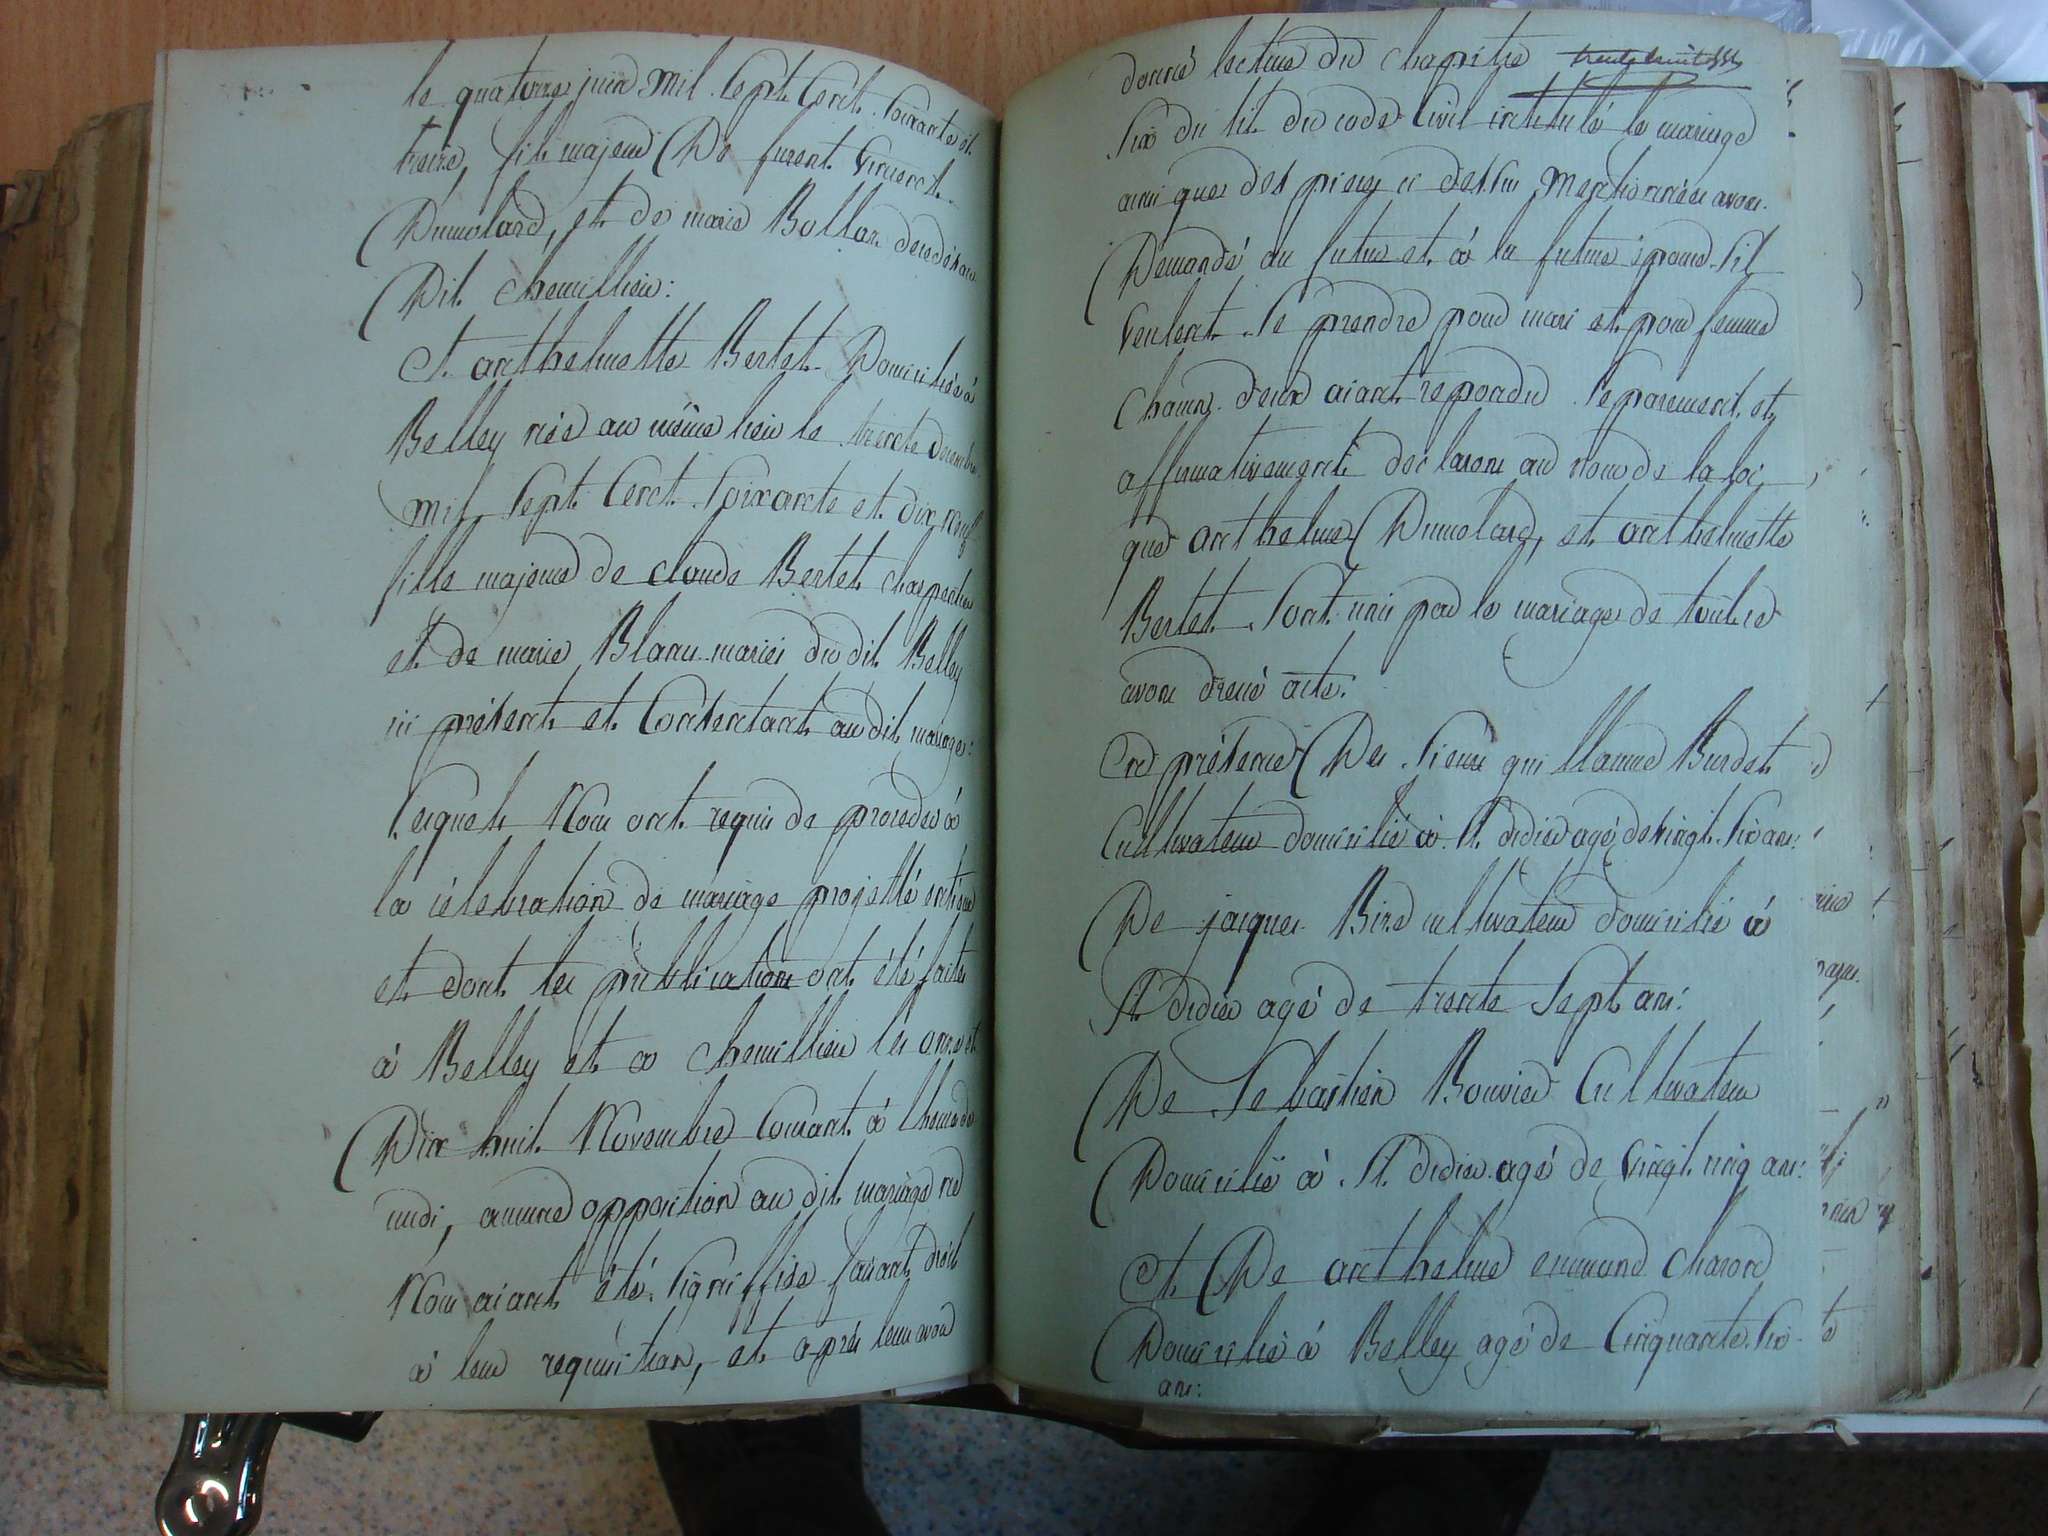 le quatorze juin mil Sept Cent Soixante et
treize, fils majeur De furent Vincent
Dumolard, et de marie Bollon decedés au
Dit Chemillieu:
Et anthelmette Bertet Domiciliée à
Belley née au même lieu le trente decembre
mil Sept Cent Soixante et dix neuf
fille majeure de claude Bertet charpentier
et de marie Blanc mariés du dit Belley
ici présent et Consentant au dit mariage:
Lesquels Nous ont requis de proceder à
la célébration de mariage projetté entr'eux
et dont les publications ont été faites
à Belley et à Chemillieu les onze et
Dix huit Novembre Courant à l'heure de
midi, aucune opposition au dit mariage ne
Nous aiant été Signiffiée faisant droit
à leur requisition, et après leur avoir
donné lecture du chapitre
Six du tit. du code Civil intitulé le mariage
ainsi que des pieces ci dessus Mentionnées avons
Demandé au futur et à la future épouse S'il
Veulent Se prendre pour mari et pour femme
Chacun d'eux aiant repondu Separement et
affirmativement declarons au nom de la loi
que anthelme Dumolard, et anthelmette
Bertet Sont unis par le mariage de tout ce
avons dressé acte.
En présence Des Sieurs guillaume Burdet
Cultivateur domicilié à St. didier agé de vingt Six ans:
De jacques Bire cultivateur domicilié à
St. didier agé de trente Sept ans:
De Sebastien Bouvier Cultivateur
Domicilié à St. didier agé de Vingt cinq ans:
Et De anthelme enmond charon
Domicilié à Belley agé de Cinquante Six
ans: